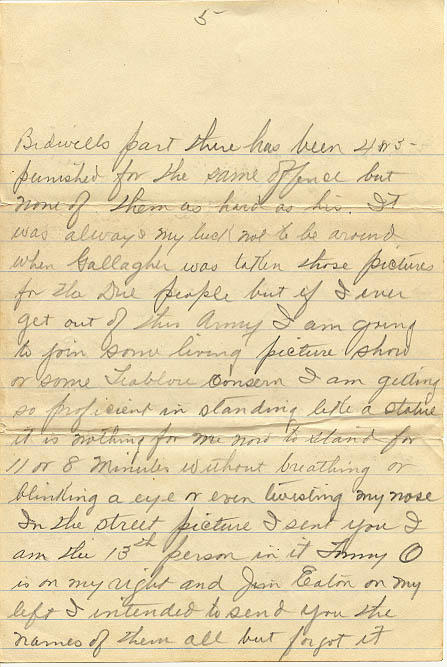 5
Bidwells part there has been 4 or 5-
punished for the same offence but
none of them as hard as his. It
was always my luck not to be around
when Gallagher was taken those pictures
for the Drie people but if I ever
get out of this Army I am going
to join some living picture show
or some Teablove Consern I am getting
so proficient in standing like a statue
it is nothing for me now to stand for
11 or 8 Minutes without breathing or
blinking a eye or even twisting my nose
In the street picture I sent you I
am the 13th person in it Tommy O
is on my right and Jim Eaton on my
left I intended to send you the
names of them all but forgot it